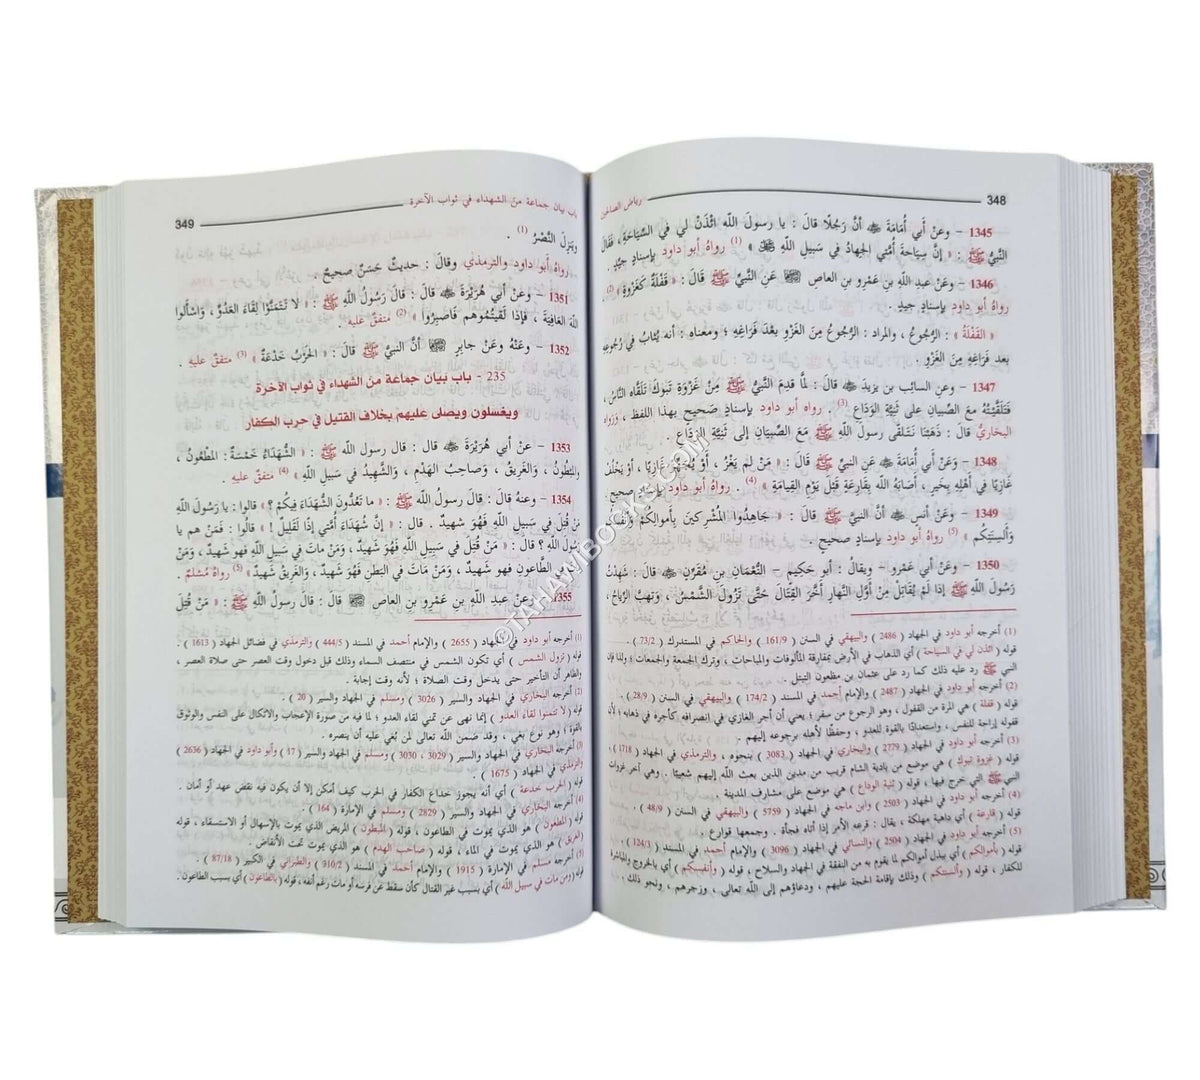 348
رياض الصالحين
1345 – وعَنْ أبي أُمَامَةَ ﷺ أنَّ رَجُلًا قالَ : يا رسولَ اللَّهِ ائْذَنْ لي في السِّيَاحَةِ ، فَقَالَ
النَّبيُّ ﷺ : « إنَّ سِيَاحَةَ أُمَّتي الجِهادُ في سَبِيلِ اللَّهِ ﷻ » (1) رواهُ أبو داود بإسنادٍ جيِّدٍ .
1346 – وَعَنْ عَبدِ اللَّهِ بنِ عَمْرِو بنِ العاصِ ﷺ عَنِ النَّبيِّ ﷺ قَالَ : « قَفْلَةٌ كَغَزْوةٍ » (2) .
رواهُ أبو داود بإسنادٍ جيدٍ .
« القَفْلَةُ » : الرُّجُوعُ ، والمراد : الرُّجُوعُ مِنَ الغَزْوِ بعدَ فَرَاغِهِ ؛ ومعناه : أنه يُثَابُ في رُجُوعِهِ
بعد فَرَاغِهِ مِنَ الغَزْوِ .
1347 – وعن السائب بن يزيدَ ﷺ قال : لمَّا قدِمَ النَّبيُّ ﷺ مِنْ غَزْوَةِ تَبُوكَ تَلَقَّاه النَّاسُ ،
فَتَلَقَّيْتُهُ مَعَ الصِّبيانِ على ثَنِيَّةِ الوَدَاعِ (3) . رواه أبو داود بإسنادٍ صَحِيحٍ بهذا اللفظ ، وَرَواه
البخاريُّ قالَ : ذَهَبْنا نَتَلَقَّى رسولَ اللَّهِ ﷺ مَعَ الصِّبْيَانِ إلى ثَنِيَّةِ الوَدَاعِ .
1348 – وَعَنْ أَبي أُمَامَةَ ﷺ عَنِ النَّبيِّ ﷺ قَالَ : « مَنْ لَم يَغْزُ ، أَوْ يُجَهِّزْ غَازِيًا ، أو يَخْلُفْ
غَازِيًا في أَهْلِهِ بخَيرٍ ، أصَابَهُ اللَّهُ بِقَارِعَةٍ قَبْلَ يَوْمِ القِيامَةِ » (4) . رواهُ أبو داود بإسنادٍ صحيحٍ .
1349 – وعَنْ أنسٍ ﷺ أنَّ النَّبيَّ ﷺ قالَ : « جَاهِدُوا المُشْرِكينَ بِأَموالِكُمْ وَأنفُسِكُم
وَأَلسِنَتِكُم » (5) رواهُ أبو داود بإسنادٍ صحيحٍ .
1350 – وَعَنْ أبي عَمْرٍو – ويقالُ : أبو حَكِيمٍ – النُّعْمَانِ بنِ مُقَرِّنٍ ﷺ قالَ : شَهِدْتُ
رَسُولَ اللَّهِ ﷺ إذا لَمْ يُقَاتِلْ مِنْ أوَّلِ النَّهارِ أخَّرَ القِتَالَ حَتَّى تَزُولَ الشَّمْسُ ، وَتَهبَّ الرِّيَاحُ ،
(1) أخرجه أبو داود في الجهاد ( 2486 ) والبيهقي في السنن ( 161/9 ) والحاكم في المستدرك ( 73/2 ) .
قوله ( ائذن لي في السياحة ) أي الذهاب في الأرض بمفارقة المألوفات والمباحات ، وترك الجمعة والجمعات ؛ ولذا فإن
النبي ﷺ رد عليه ذلك كما رد على عثمان بن مظعون التبتل .
(2) أخرجه أبو داود في الجهاد ( 2487 ) والإمام أحمد في المسند ( 174/2 ) والبيهقي في السنن ( 28/9 ) .
قوله ( قفلة ) هي المرة من القفول ، وهو الرجوع من سفر ؛ يعني أن أجر الغازي في انصرافه كأجره في ذهابه ؛ لأن
قفوله لراحة للنفس ، واستعدادًا بالقوة للعدو ، وحفظًا لأهله برجوعه إليهم .
(3) أخرجه أبو داود في الجهاد ( 2779 ) والبخاري في الجهاد ( 3083 ) بنحوه ، والترمذي في الجهاد ( 1718 )
قوله ( غزوة تبوك ) هي موضع من بادية الشام قريب من مدين الذين بعث الله إليهم شعيبًا . وهي آخر غزوات
النبي ﷺ التي خرج فيها ، قوله ( ثنية الوداع ) هي موضع على مشارف المدينة .
(4) أخرجه أبو داود في الجهاد ( 2503 ) وابن ماجه في الجهاد ( 5759 ) والبيهقي في السنن ( 48/9 ) .
قوله ( قارعة ) أي داهية مهلكة ، يقال : قرعه الأمر إذا أتاه فجأة . وجمعها قوارع .
(5) أخرجه أبو داود في الجهاد ( 2504 ) والنسائي في الجهاد ( 3096 ) والإمام أحمد في المسند ( 124/3 )
قوله ( بأموالكم ) أي ببذل أموالكم لما يقوم به من النفقة في الجهاد والسلاح ، قوله ( وأنفسكم ) أي بالخروج والمباشرة
للكفار ، قوله ( وألسنتكم ) وذلك بإقامة الحجة عليهم ، ودعاؤهم إلى الله تعالى ، وزجرهم ، ونحو ذلك .
باب بيان جماعة من الشهداء في ثواب الآخرة
349
ويَنزِلَ النَّصْرُ (1) .
رواهُ أبو داود والترمذي وقالَ : حديثٌ حَسَنٌ صحيحٌ .
1351 – وَعَنْ أبي هُرَيْرَةَ ﷺ قَالَ : قالَ رَسُولُ اللَّهِ ﷺ : « لا تَتَمَنَّوْا لِقَاءَ العَدُوِّ ، وَاسْأَلُوا
اللَّهَ العَافِيَةَ ، فَإذا لَقيتُموهم فَاصبِرُوا » (2) متفقٌ عليهِ .
1352 – وَعَنْهُ وعَنْ جابِرٍ ﷺ أنَّ النَّبيَّ ﷺ قَالَ : « الحَرْبُ خَدْعَةٌ » (3) متفقٌ عليهِ .
235 – باب بيان جماعة من الشهداء في ثواب الآخرة
ويغسلون ويصلى عليهم بخلاف القتيل في حرب الكفار
1353 – عَنْ أبي هُرَيْرَةَ ﷺ قالَ : قال رسول الله ﷺ : « الشُّهَدَاءُ خَمْسَةٌ: المَطْعُونُ ،
والمَبْطُونُ ، والغَرِيقُ ، وَصَاحِبُ الهَدْمِ ، وَالشَّهيدُ في سَبيلِ اللَّهِ » (4) متفقٌ عليهِ .
1354 – وعنهُ قالَ : قالَ رسولُ اللَّهِ ﷺ : « ما تَعُدُّونَ الشُّهَدَاءَ فِيكُم ؟ » قالوا: يا رَسُولَ اللَّهِ
مَنْ قُتِلَ في سَبيلِ اللَّهِ فَهُوَ شَهيدٌ . قالَ : « إنَّ شُهَدَاءَ أُمَّتي إذًا لَقَلِيلٌ ! » قالُوا : فَمَنْ هم يا
رسُولَ اللَّهِ ؟ قالَ : « مَنْ قُتِلَ في سَبيلِ اللَّهِ فَهُوَ شَهيدٌ ، وَمَنْ ماتَ في سَبيلِ اللَّهِ فَهُوَ شهيدٌ ، وَمَنْ
في الطَّاعُونِ فهو شَهيدٌ ، وَمَنْ مَاتَ في البَطْنِ فَهُوَ شَهيدٌ ، وَالغَريقُ شَهيدٌ » (5) رواهُ مُسْلمٌ .
1355 – وعنْ عبدِ اللَّهِ بنِ عَمْرِو بنِ العاصِ ﷺ قالَ : قالَ رسولُ اللَّهِ ﷺ : « مَنْ قُتِلَ
(1) أخرجه أبو داود في الجهاد ( 2655 ) والإمام أحمد في المسند ( 444/5 ) والترمذي في فضائل الجهاد ( 1613 )
قوله ( تزول الشمس ) أي تكون الشمس في منتصف السماء وذلك قبل دخول وقت العصر حتى صلاة العصر ،
والظاهر أن التأخير حتى يدخل وقت الصلاة ؛ لأنه وقت إجابة .
(2) أخرجه البخاري في الجهاد والسير ( 3026 ) ومسلم في الجهاد والسير ( 20 ) .
قوله ( لا تتمنوا لقاء العدو ) إنما نهى عن تمني لقاء العدو ؛ لما فيه من صورة الإعجاب والاتكال على النفس والوثوق
بالقوة ؛ وهو نوع بغي ، وقد ضمن الله تعالى لمن بُغي عليه أن ينصره .
(3) أخرجه البخاري في الجهاد والسير ( 3029 ، 3030 ) ومسلم في الجهاد والسير ( 17 ) وأبو داود في الجهاد ( 2636 )
والترمذي في الجهاد ( 1675 ) .
قوله ( الحرب خدعة ) أي أنه يجوز خداع الكفار في الحرب كيف أمكن إلا أن يكون فيه نقض عهد أو أمان .
(4) أخرجه البخاري في الجهاد والسير ( 2829 ) ومسلم في الإمارة ( 164 ) .
قوله ( المطعون ) هو الذي يموت في الطاعون ، قوله ( المبطون ) المريض الذي يموت بالإسهال أو الاستسقاء ، قوله
( الغريق ) هو الذي يموت في الماء ، قوله ( صاحب الهدم ) هو الذي يموت تحت الأنقاض .
(5) أخرجه مسلم في الإمارة ( 1915 ) والإمام أحمد في المسند ( 310/2 ) والطبراني في الكبير ( 87/18 ) .
قوله ( ومن مات في سبيل الله ) أي بسبب غير القتال كأن سقط عن فرسه أو مات رغم أنفه ، قوله ( بالطاعون ) أي بسبب الطاعون .
©TAHAWIBOOKS.COM